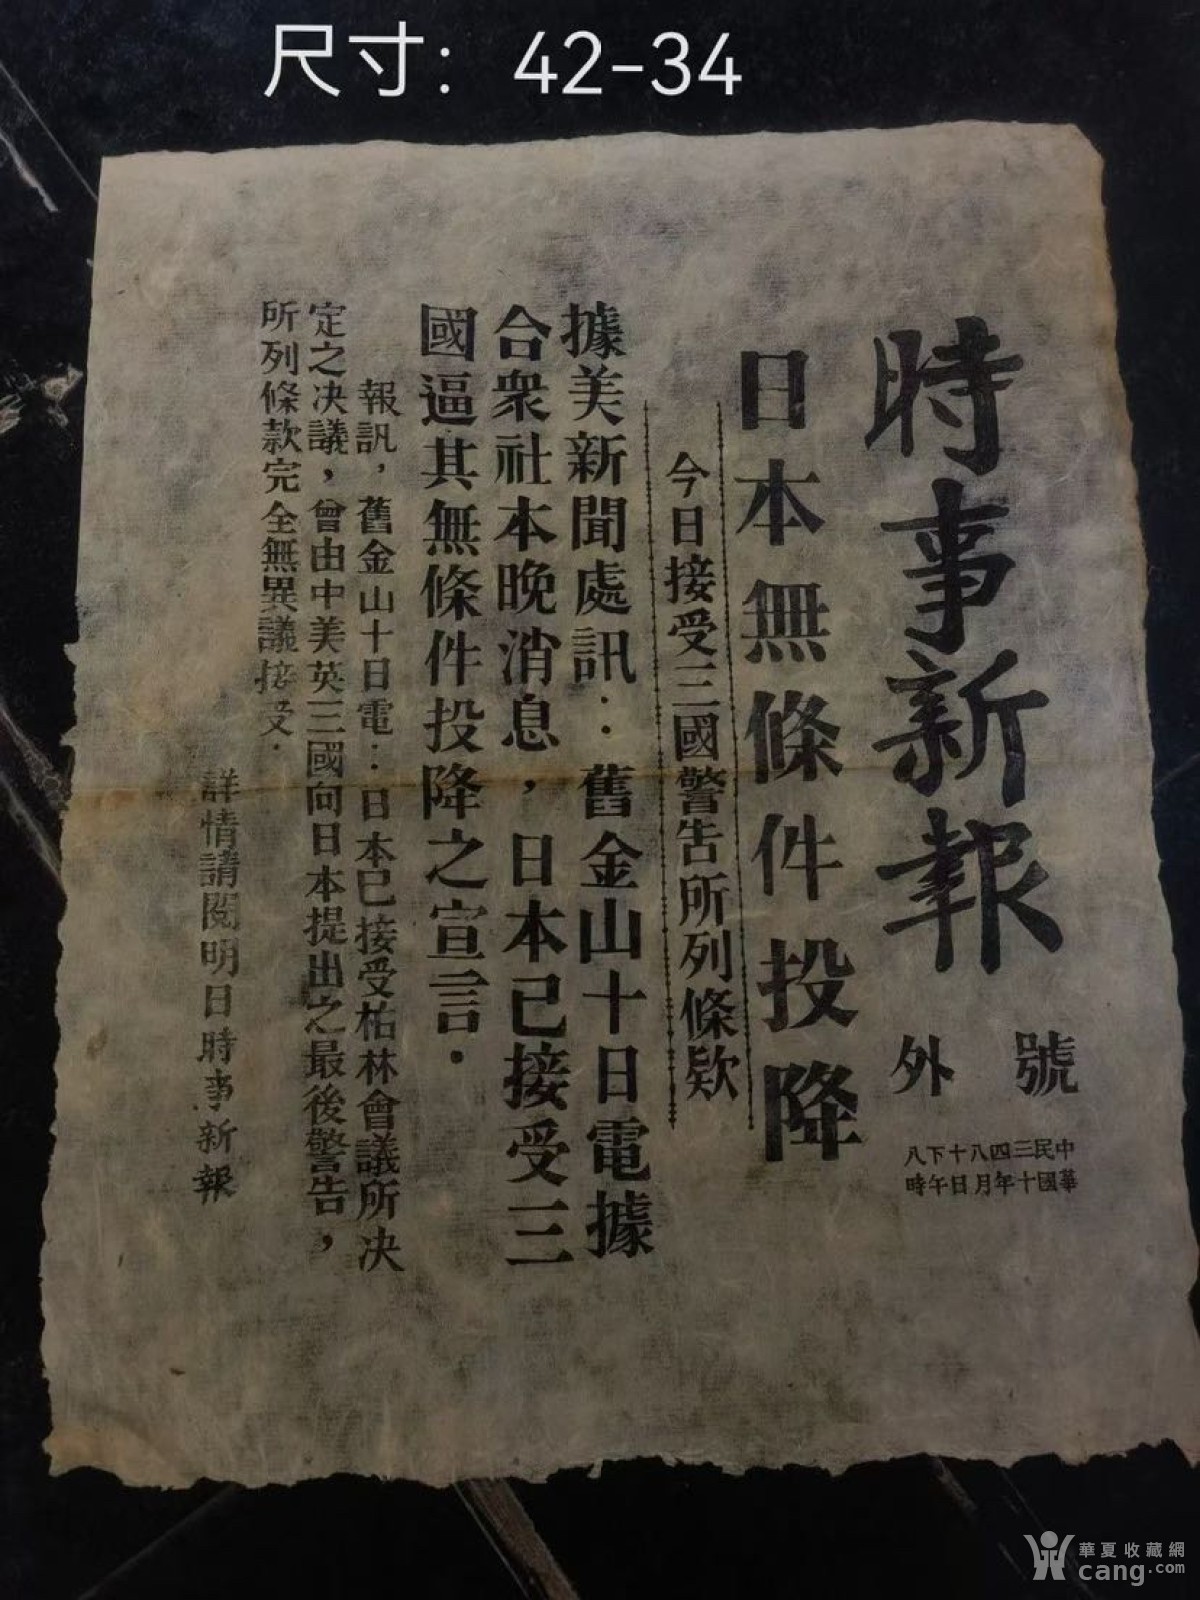 尺寸：42-34
時事新報
號外
中華民國三十四年八月十日下午八時
日本無條件投降
今日接受三國警告所列條欵
據美新聞處訊：舊金山十日電據
合衆社本晚消息，日本已接受三
國逼其無條件投降之宣言．
報訊，舊金山十日電：日本已接受柏林會議所决
定之决議，曾由中美英三國向日本提出之最後警告，
所列條款完全無異議接受．
詳情請閱明日時事新報
華夏收藏網
cang.com